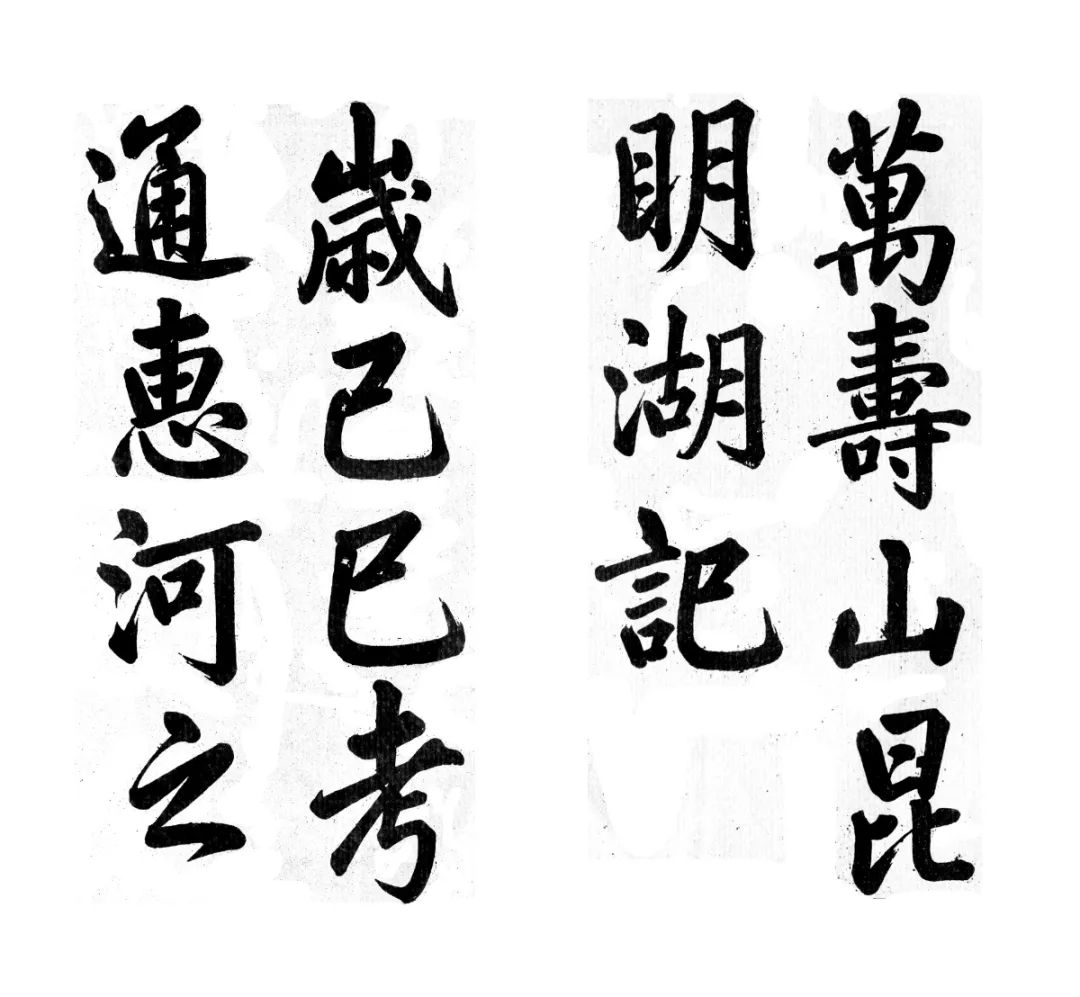 萬壽山昆
明湖記
歲己巳考
通惠河之